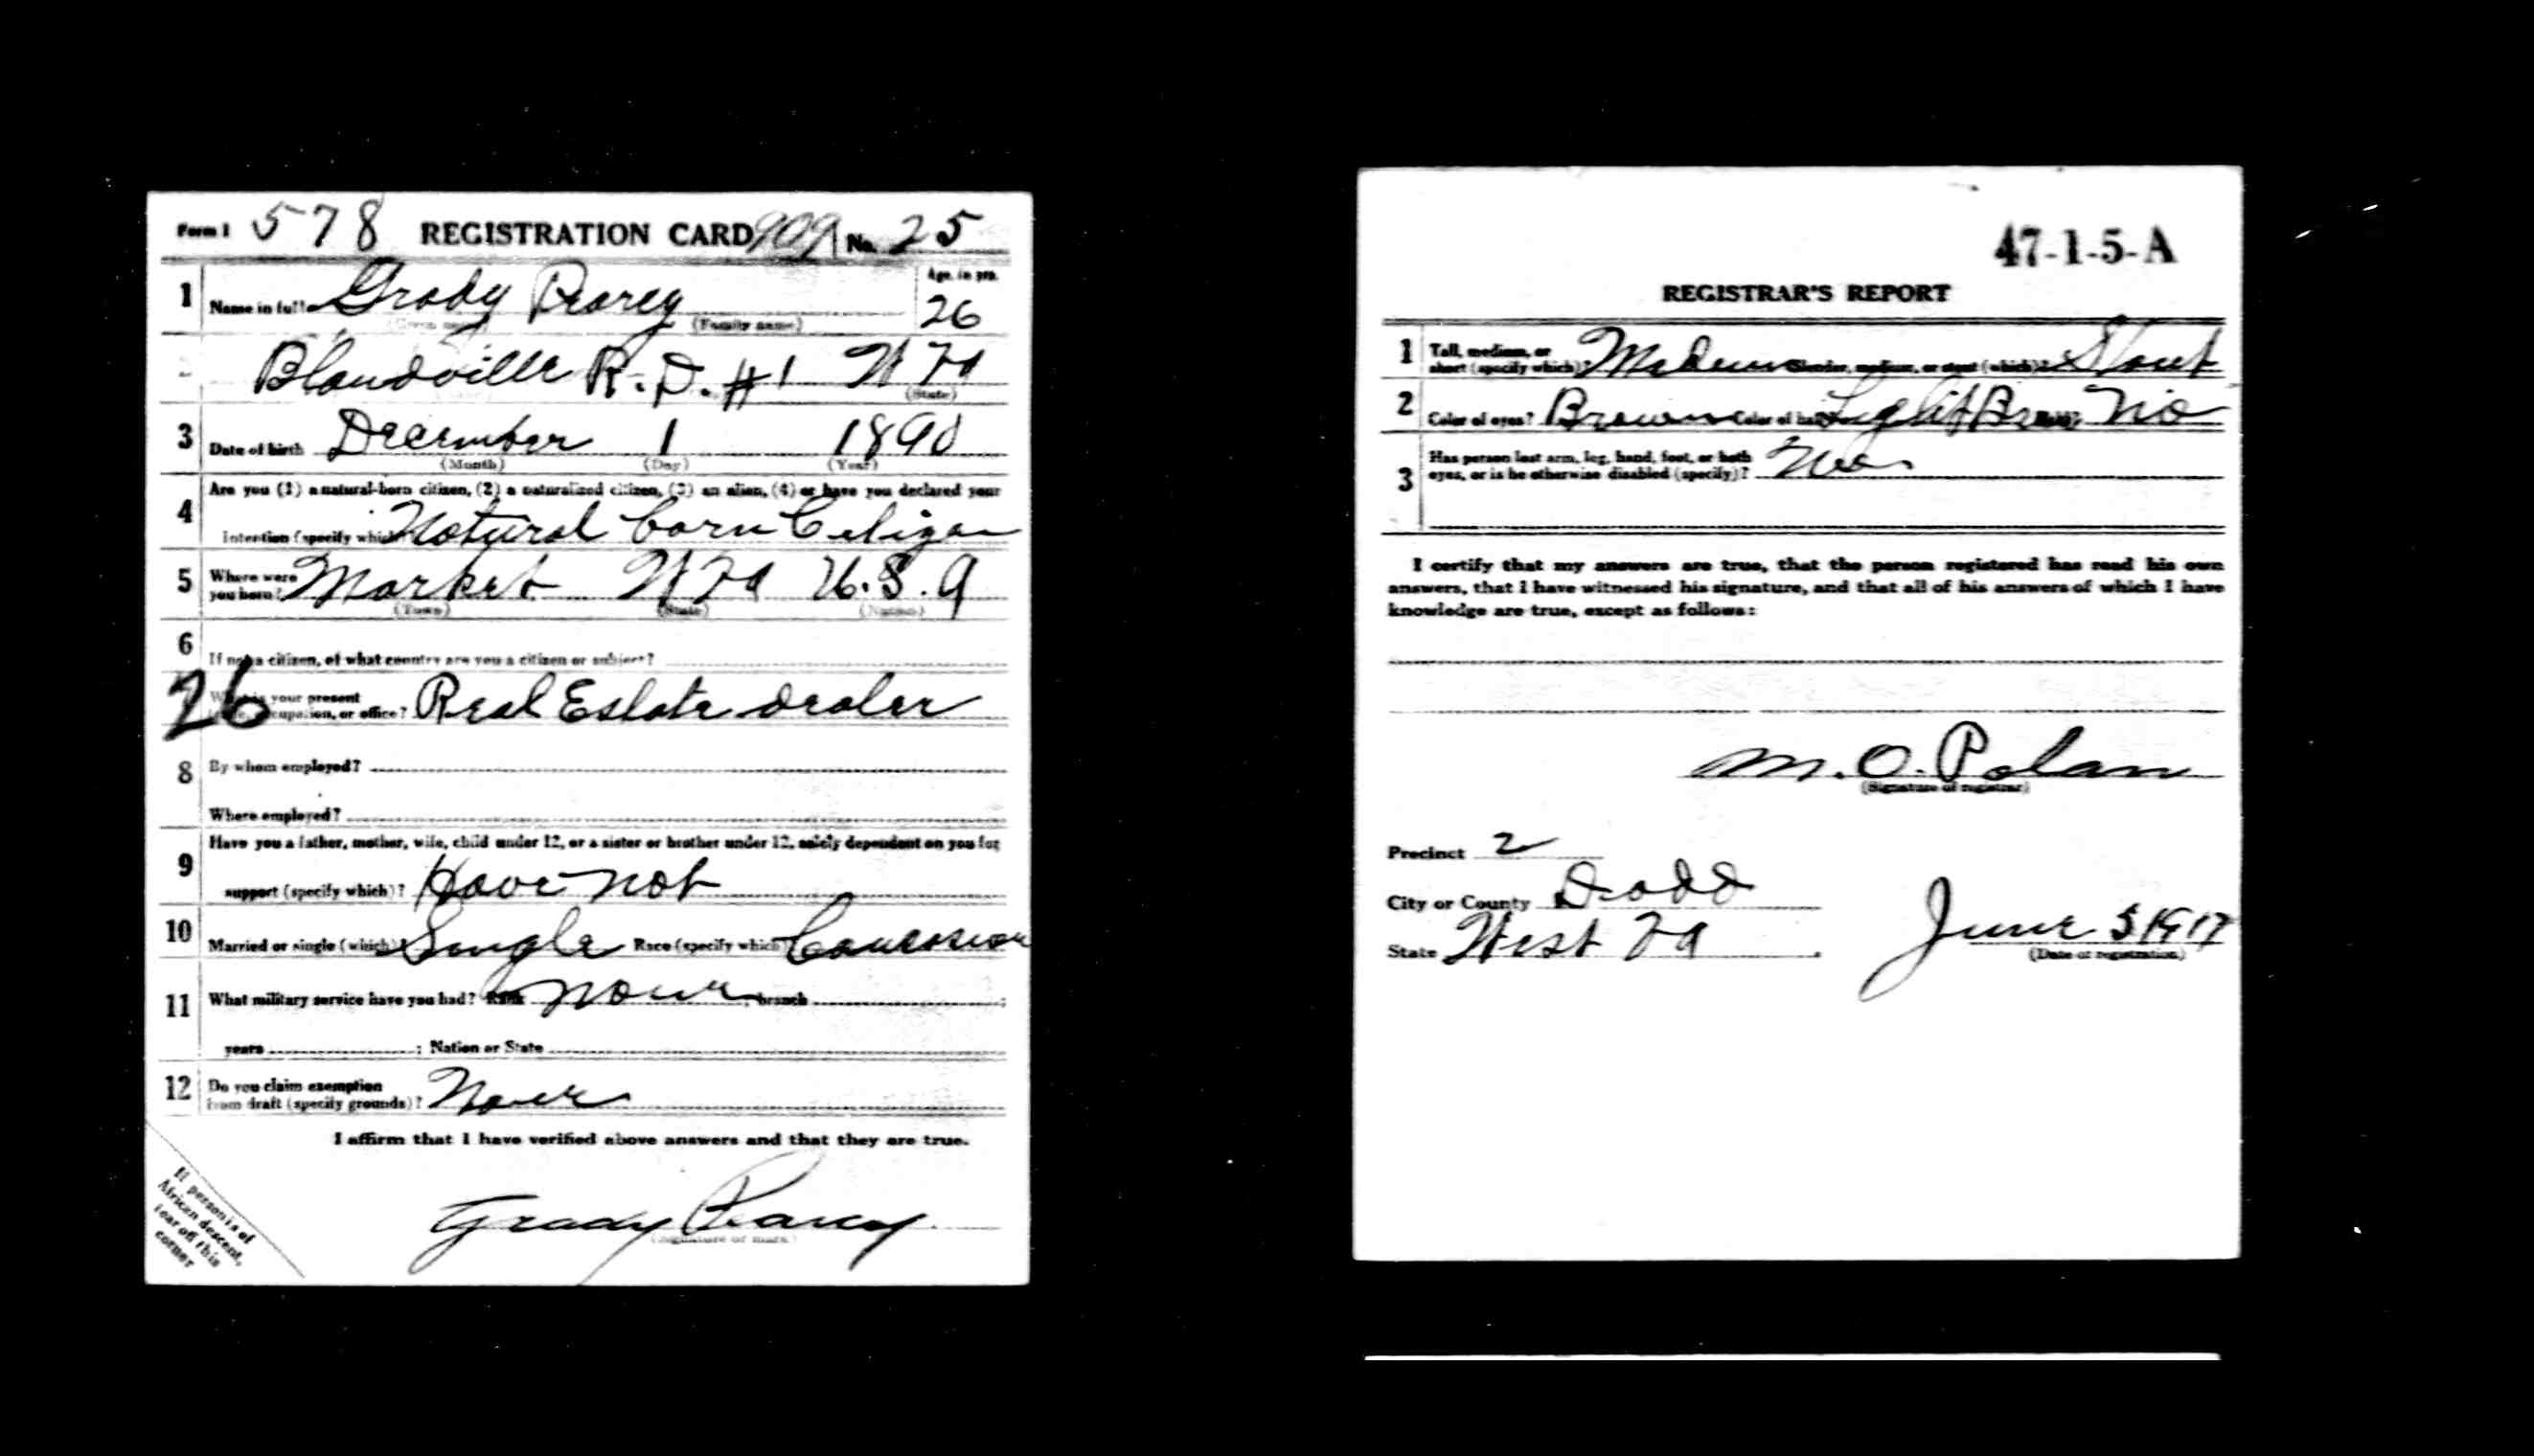 Form 1 578 REGISTRATION CARD 909 No. 25
1 Name in full Grady Pearcy Age, in yrs. 26
(Given name) (Family name)
Blandville R.D. #1 W Va
(State)
3 Date of birth December 1 1890
(Month) (Day) (Year)
4 Are you (1) a natural-born citizen, (2) a naturalized citizen, (3) an alien, (4) or have you declared your
intention (specify which) Natural born Citizen
5 Where were you born? Market W Va U.S.A
(Town) (State) (Nation)
6 If not a citizen, of what country are you a citizen or subject?
26 What is your present
trade, occupation, or office? Real Estate dealer
8 By whom employed?
Where employed?
9 Have you a father, mother, wife, child under 12, or a sister or brother under 12, solely dependent on you for
support (specify which)? Have not
10 Married or single (which)? Single Race (specify which)? Caucasian
11 What military service have you had? Rank None ; branch ;
years ; Nation or State
12 Do you claim exemption
from draft (specify grounds)? None
I affirm that I have verified above answers and that they are true.
Grady Pearcy
(Signature or mark)
If person is of
African descent,
tear off this
corner
47-1-5-A
REGISTRAR'S REPORT
1 Tall, medium, or
short (specify which)? Medium Slender, medium, or stout (which)? Stout
2 Color of eyes? Brown Color of hair? Light Brn Bald? No
3 Has person lost arm, leg, hand, foot, or both
eyes, or is he otherwise disabled (specify)? No
I certify that my answers are true, that the person registered has read his own
answers, that I have witnessed his signature, and that all of his answers of which I have
knowledge are true, except as follows:
M. O. Polan
(Signature of registrar)
Precinct 2
City or County Dodd
State West Va June 5 1917
(Date of registration)